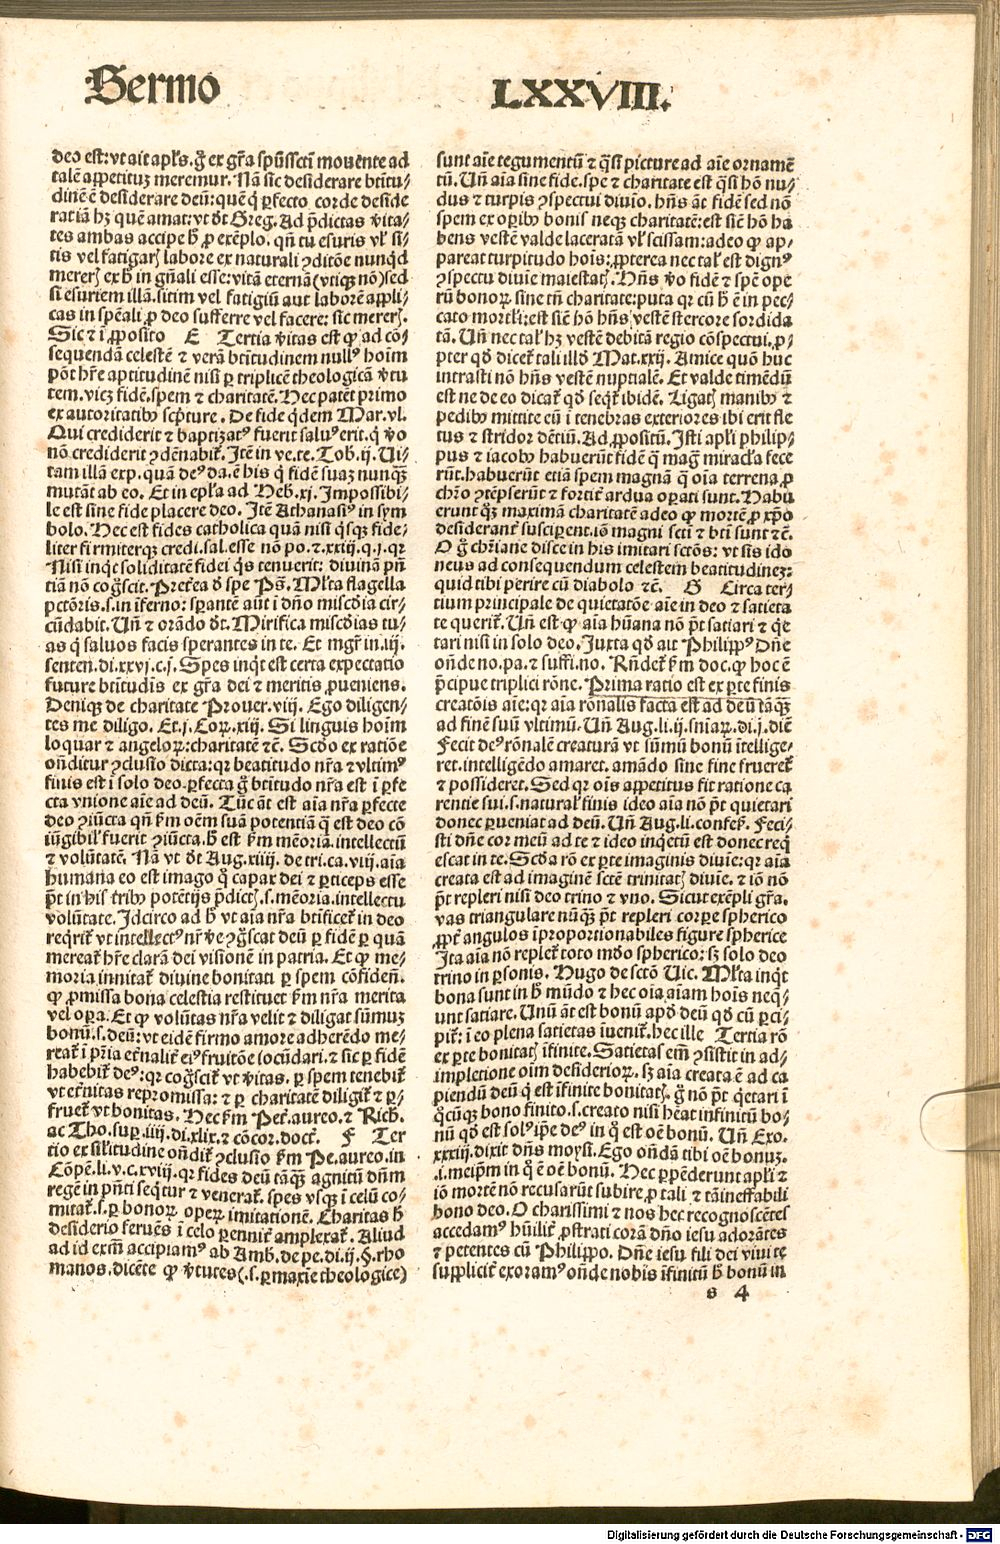 Sermo LXXVIII.
deo est: vt ait apl's. g̃ ex gr̃a sp̃ussctĩ mouente ad
talē appetituȝ meremur. Nã sic desiderare btĩtu/
dinē ē desiderare deũ: quē q̃ perfecto corde deside
rat iã hȝ quē amat: vt dt̃ Greg. Ad p̃dictas v̾ita/
tes ambas accipe h̃ p̱ exēplo. qñ tu esuris vl' si/
tis vel fatigar̃ labore ex naturali ꝯditōe nunq̃d
mererẽ ex h̃ in gñali esse: vitã eternã (vtiqȝ nõ) sed
si esuriem illã. sitim vel fatigiũ aut laborē appli/
cas in sp̃eali p̱ deo sufferre vel facere: sic mererẽ.
Sic ⁊ ĩ p̱posito E Tertia v̾itas est ꝙ ad cõ/
sequendã celestē ⁊ verã btĩtudinem null⁹ hoĩm
põt hr̃e aptitudinē nisi ꝑ triplicē theologicã v̾tu
tem. viȝ fidē. spem ⁊ charitatē. Hec patet primo
ex autoritatib⁹ scp̃ture. De fide q̃dem Mar. vl.
Qui crediderit ⁊ baptizat⁹ fuerit salu⁹ erit. q̃ v̾o
nõ crediderit ꝯdēnabit̃. Itē in ve. te. Tob. ij. Ui/
tam illã exp. quã de⁹ da. ē his q̃ fidē suaȝ nunqȝ̃
mutãt ab eo. Et in ep̃la ad Heb. xj. Impossibi/
le est sine fide placere deo. Itē Athanasi⁹ in sym
bolo. Hec est fides catholica quã nisi q̃sqȝ fide/
liter firmiterqȝ credi. sal. esse nõ po. ⁊. xxiij. q. j. qr
Nisi inq̃t soliditatē fidei q̃s tenuerit: diuinã pñ
tiã nõ cog̃scit. Pret̾ea d̾ spe Ps̃. Ml'ta flagella
pctõris. s. in ĩferno: sperantē aũt ĩ dño miscdĩa cir/
cũdabit. Uñ ⁊ orãdo dt̃. Mirifica miscdĩas tu/
as q̃ saluos facis sperantes in te. Et mgr̃ in. iij.
senten. di. xxvj. c. j. Spes inq̃t est certa expectatio
future btĩtudĩs ex gr̃a dei ⁊ meritis p̱ueniens.
Deniqȝ de charitate Prouer. viij. Ego diligen/
tes me diligo. Et. j. Coꝝ. xiij. Si linguis hoĩm
loquar ⁊ angeloꝝ: charitatē ⁊c̃. Scdo ex ratiõe
oñditur ꝯclusio dicta: qr beatitudo nr̃a ⁊ vltim⁹
finis est ĩ solo deo. perfecta g̃ btĩtudo nr̃a est ĩ ꝑfe
cta vnione aĩe ad deũ. Tũc ãt est aĩa nr̃a ꝑfecte
deo ꝯiũcta qñ fm̃ oēm suã potentiã q̃ est deo cõ
iũgibil' fuerit ꝯiũcta. h̃ est fm̃ mēoria. intellectũ
⁊ volũtatē. Nã vt dt̃ Aug. xiiij. de tri. ca. viij. aĩa
humana eo est imago q̃ capax dei ⁊ ꝑticeps esse
p̃t in his trib⁹ potētijs p̃dictẽ. s. mēoria. intellectu
volũtate. Idcirco ad h̃ vt aĩa nr̃a btĩficet̃ in deo
req̃rit̃ vt intellect⁹ nr̃ v̾e ꝯg̃scat deũ ꝑ fidē ꝑ quã
mereat̃ hr̃e clarã dei visionē in patria. Et ꝙ me/
moria innitat̃ diuine bonitati ꝑ spem cõfideñ.
ꝙ p̱missa bona celestia restituet fm̃ nr̃a merita
vel oꝑa. Et ꝙ volũtas nr̃a velit ⁊ diligat sũmuȝ
bonũ. s. deũ: vt eidē firmo amore adherēdo me/
reat̃ ĩ pr̃ia et̾nalit̃ ei⁹ fruitõe iocũdari. ⁊ sic ꝑ fidē
habebit̃ de⁹: qr cog̃scit̃ vt v̾itas. ꝑ spem tenebit̃
vt et̾nitas repromissa: ⁊ ꝑ charitatē diligit̃ ⁊ ꝑ/
fruet̃ vt bonitas. Hec fm̃ Pet̃. aureo. ⁊ Rich.
ac Tho. suꝑ. iiij. di. xlix. ⁊ cõcor. doct̃. F Ter
tio ex sil'itudine oñdit̃ ꝯclusio fm̃ Pe. aureo. in
Cõpē. li. v. c. xviij. qr fides deũ tãqȝ̃ agnitũ dñm
regē in pñti seq̃tur ⁊ venerat̃. spes vsqȝ ĩ celũ co/
mitat̃. s. ꝑ bonoꝝ oꝑeꝝ imitationē. Charitas h̃
desiderio feruēs ĩ celo perennit̃ amplexat̃. Aliud
ad id exm̃ accipiam⁹ ab Amb. de pe. di. ij. §. rho
manos. dicēte ꝙ v̾tutes (. s. ꝑmaxĩe theologice)
sunt aĩe tegumentũ ⁊ q̃si picture ad aĩe ornamē
tũ. Uñ aĩa sine fide. spe ⁊ charitate est q̃si hõ nu/
dus ⁊ turpis ꝯspectui diuĩo. hñs ãt fidē sed nõ
spem ex oꝑib⁹ bonis neqȝ charitatē: est sic̃ hõ ha
bens vestē valde laceratã vl' scissam: adeo ꝙ ap/
pareat turpitudo hoĩs: p̱pterea nec tal' est dign⁹
ꝯspectu diuĩe maiestatẽ. Hñs v̾o fidē ⁊ spē oꝑe
rũ bonoꝝ sine tñ charitate: puta qr cũ h̃ ē in pec/
cato mortl'i: est sic̃ hõ hñs vestē stercore sordida
tã. Uñ nec tal' hȝ vestē debitã regio cõspectui. p̱/
pter qd̾ dicet̃ tali illd̾ Mat. xxij. Amice quõ huc
intrasti nõ hñs vestē nuptialē. Et valde timēdũ
est ne de eo dicat̃ qd̾ seq̃t̃ ibidē. Ligatẽ manib⁹ ⁊
pedib⁹ mittite eũ ĩ tenebras exteriores ibi erit fle
tus ⁊ stridor dētiũ. Ad p̱positũ. Isti apl'i philip/
pus ⁊ iacob⁹ habuerũt fidē q̃ mag̃ miracl'a fece
rũt. habuerũt etiã spem magnã q̃ oĩa terrena p̱
chr̃o ꝯtēpserũt ⁊ fortit̃ ardua oꝑati sunt. Habu
erunt qȝ̃ maximã charitatē adeo ꝙ mortē p̱ xp̃o
desiderant̃ susciperent. iõ magni scti ⁊ bt̃i sunt ⁊c̃.
O g̃ chr̃iane disce in his imitari sctõs: vt sis ido
neus ad consequendum celestem beatitudinez:
quid tibi perire cũ diabolo ⁊c̃. G Circa ter/
tium principale de quietatõe aĩe in deo ⁊ satieta
te querit̃. Uñ est ꝙ aĩa hũana nõ p̃t satiari ⁊ q̃e
tari nisi in solo deo. Juxta qd̾ ait Philipp⁹ Dñe
oñde no. pa. ⁊ suffi. no. Rñdet̃ fm̃ doc. ꝙ hoc ē
p̃cipue triplici rõne. Prima ratio est ex ꝑte finis
creatõis aĩe: qr aĩa rõnalis facta est ad deũ tãqȝ̃
ad finē suũ vltimũ. Uñ Aug. li. ij. sniaꝝ. di. j. dic̃
Fecit de⁹ rõnalē creaturã vt sũmũ bonũ ĩtellige/
ret. intelligēdo amaret. amãdo sine fine frueret̃
⁊ possideret. Sed qr oĩs appetitus fit ratione ca
rentie sui. s. natural' finis ideo aĩa nõ p̃t quietari
donec ꝑueniat ad deũ. Uñ Aug. li. confes̃. Feci/
sti dñe cor meũ ad te ⁊ ideo inq̃etũ est donec req̃
escat in te. Scda rõ ex ꝑte imaginis diuĩe: qr aĩa
creata est ad imaginē sctē trinitatẽ diuĩe. ⁊ iõ nõ
p̃t repleri nisi deo trino ⁊ vno. Sicut exēpli gr̃a.
vas triangulare nũqȝ̃ p̃t repleri corꝑe spherico
p̱pt̃ angulos ĩproportionabiles figure spherice
Ita aĩa nõ replet̃ toto mũdo spherico: sȝ solo deo
trino in ꝑsonis. Hugo de sctõ Uic. Ml'ta inq̃t
bona sunt in h̃ mũdo ⁊ hec oĩa aĩam hoĩs neq̃/
unt satiare. Unũ ãt est bonũ apd̾ deũ qd̾ cũ ꝑci/
pit̃: ĩ eo plena satietas iuenit̃. hec ille Tertia rõ
ex ꝑte bonitatẽ ĩfinite. Satietas em̃ ꝯsistit in ad/
impletione oĩm desiderioꝝ. sȝ aĩa creata ē ad ca
piendũ deũ q̃ est ĩfinite bonitatẽ. g̃ nõ p̃t q̃etari ĩ
q̃cũqȝ bono finito. s. creato nisi hēat infinitũ bo/
nũ qd̾ est sol⁹ ip̃e de⁹ in q̃ est oē bonũ. Uñ Exo.
xxxiij. dixit dñs moysi. Ego oñdã tibi oē bonuȝ.
.i. meip̃m in q̃ ē oē bonũ. Hec perpēderunt apl'i ⁊
iõ mortē nõ recusarũt subire p̱ tali ⁊ tã ineffabili
bono deo. O charissimi ⁊ nos hec recognoscētes
accedam⁹ hũilit̃ p̱strati corã dño iesu adorãtes
⁊ petentes cũ Philippo. Dñe iesu fili dei viui te
supplicit̃ exoram⁹ oñde nobis ĩfinitũ h̃ bonũ in
s 4
Digitalisierung gefördert durch die Deutsche Forschungsgemeinschaft - DFG